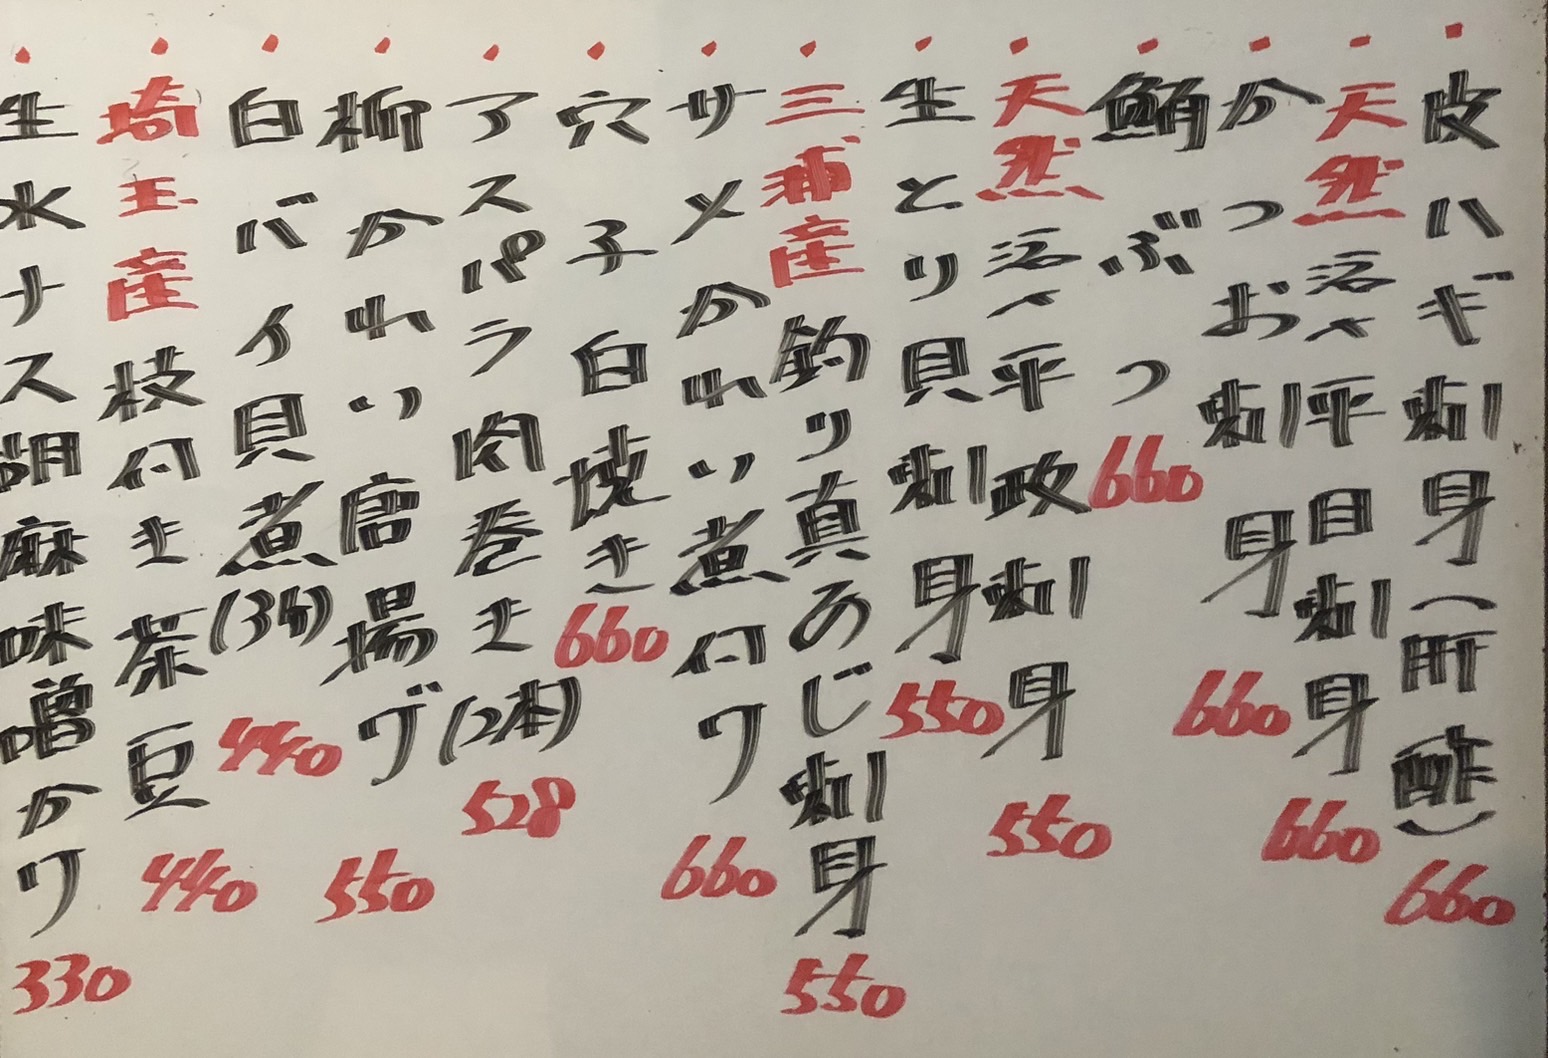 皮ハギ刺身(肝酢)660
天然活〆平目刺身660
かつお刺身660
鮪ぶつ660
天然活〆平政刺身550
生とり貝刺身550
三浦産釣り真あじ刺身550
サメかれい煮付ケ660
穴子白焼き660
アスパラ肉巻き(2本)528
柳かれい唐揚げ550
白バイ貝煮(3ケ)440
埼玉産枝付き茶豆440
生水ナス胡麻味噌かケ330